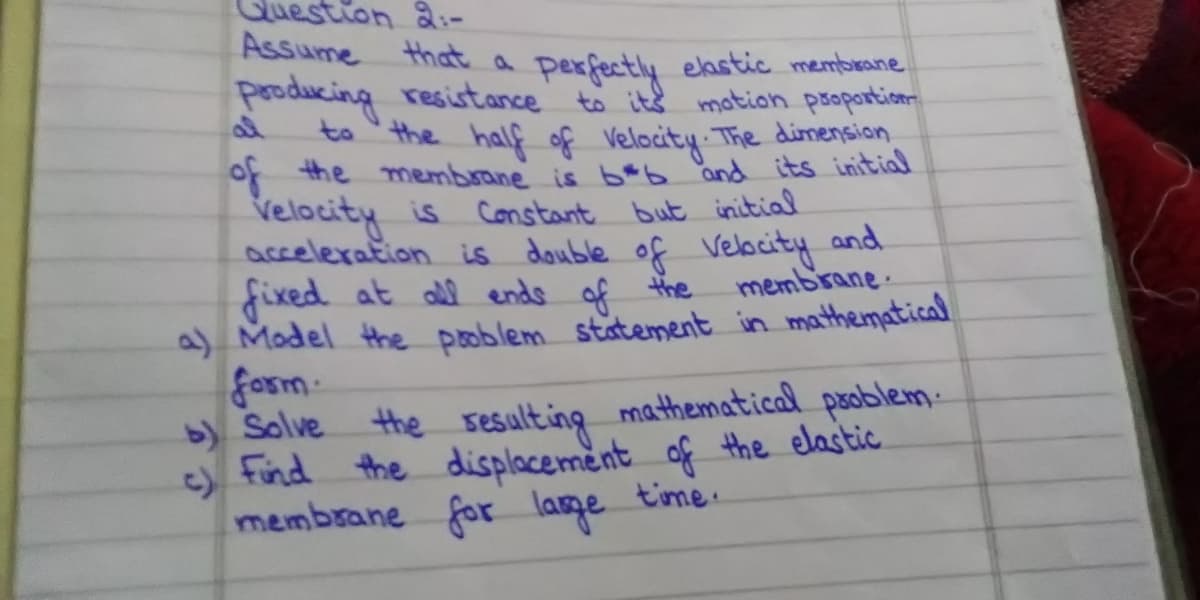 Question 2:-
Assume that a perfectly elastic membrane
producing resistance to its motion proportion-
al to the half of velocity. The dimension
of the membrane is b*b and its initial
velocity is Constant but initial
acceleration is double of velocity and
fixed at all ends of the membrane.
a) Model the problem statement in mathematical
form.
b) Solve the resulting mathematical problem.
c) Find the displacement of the elastic
membrane for large time.